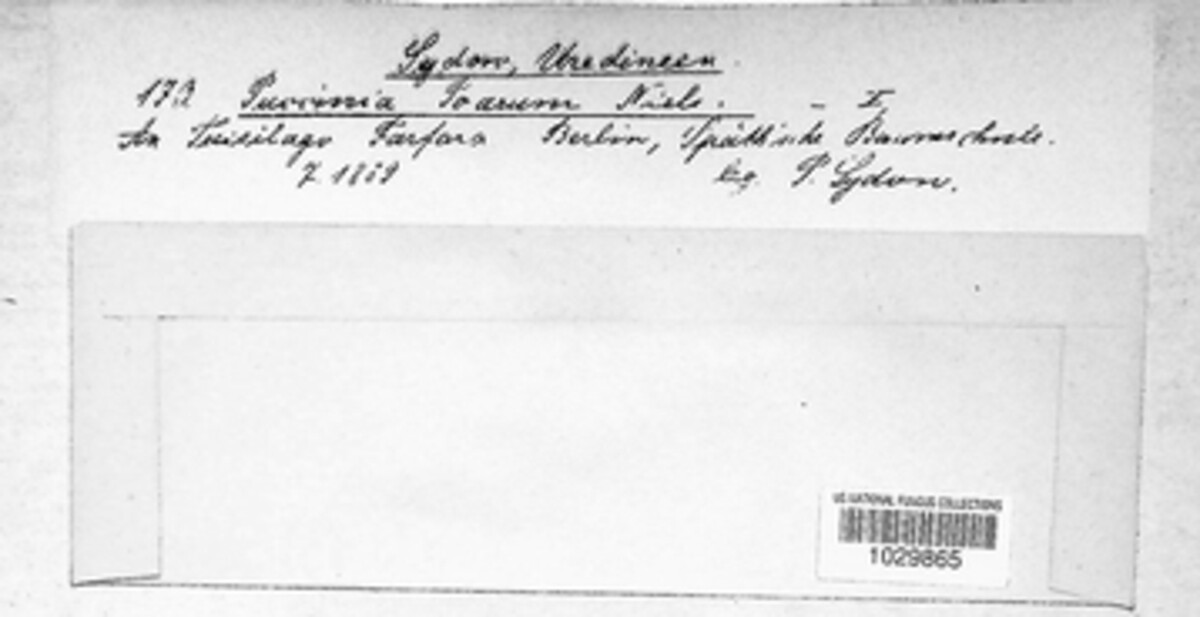 Sydow, Uredineen
173 Puccinia Poarum Niels. - I
An Tussilago Farfara Berlin, Späth'sche Baumschule.
7. 1889 leg. P. Sydow.
US NATIONAL FUNGUS COLLECTIONS
1029865